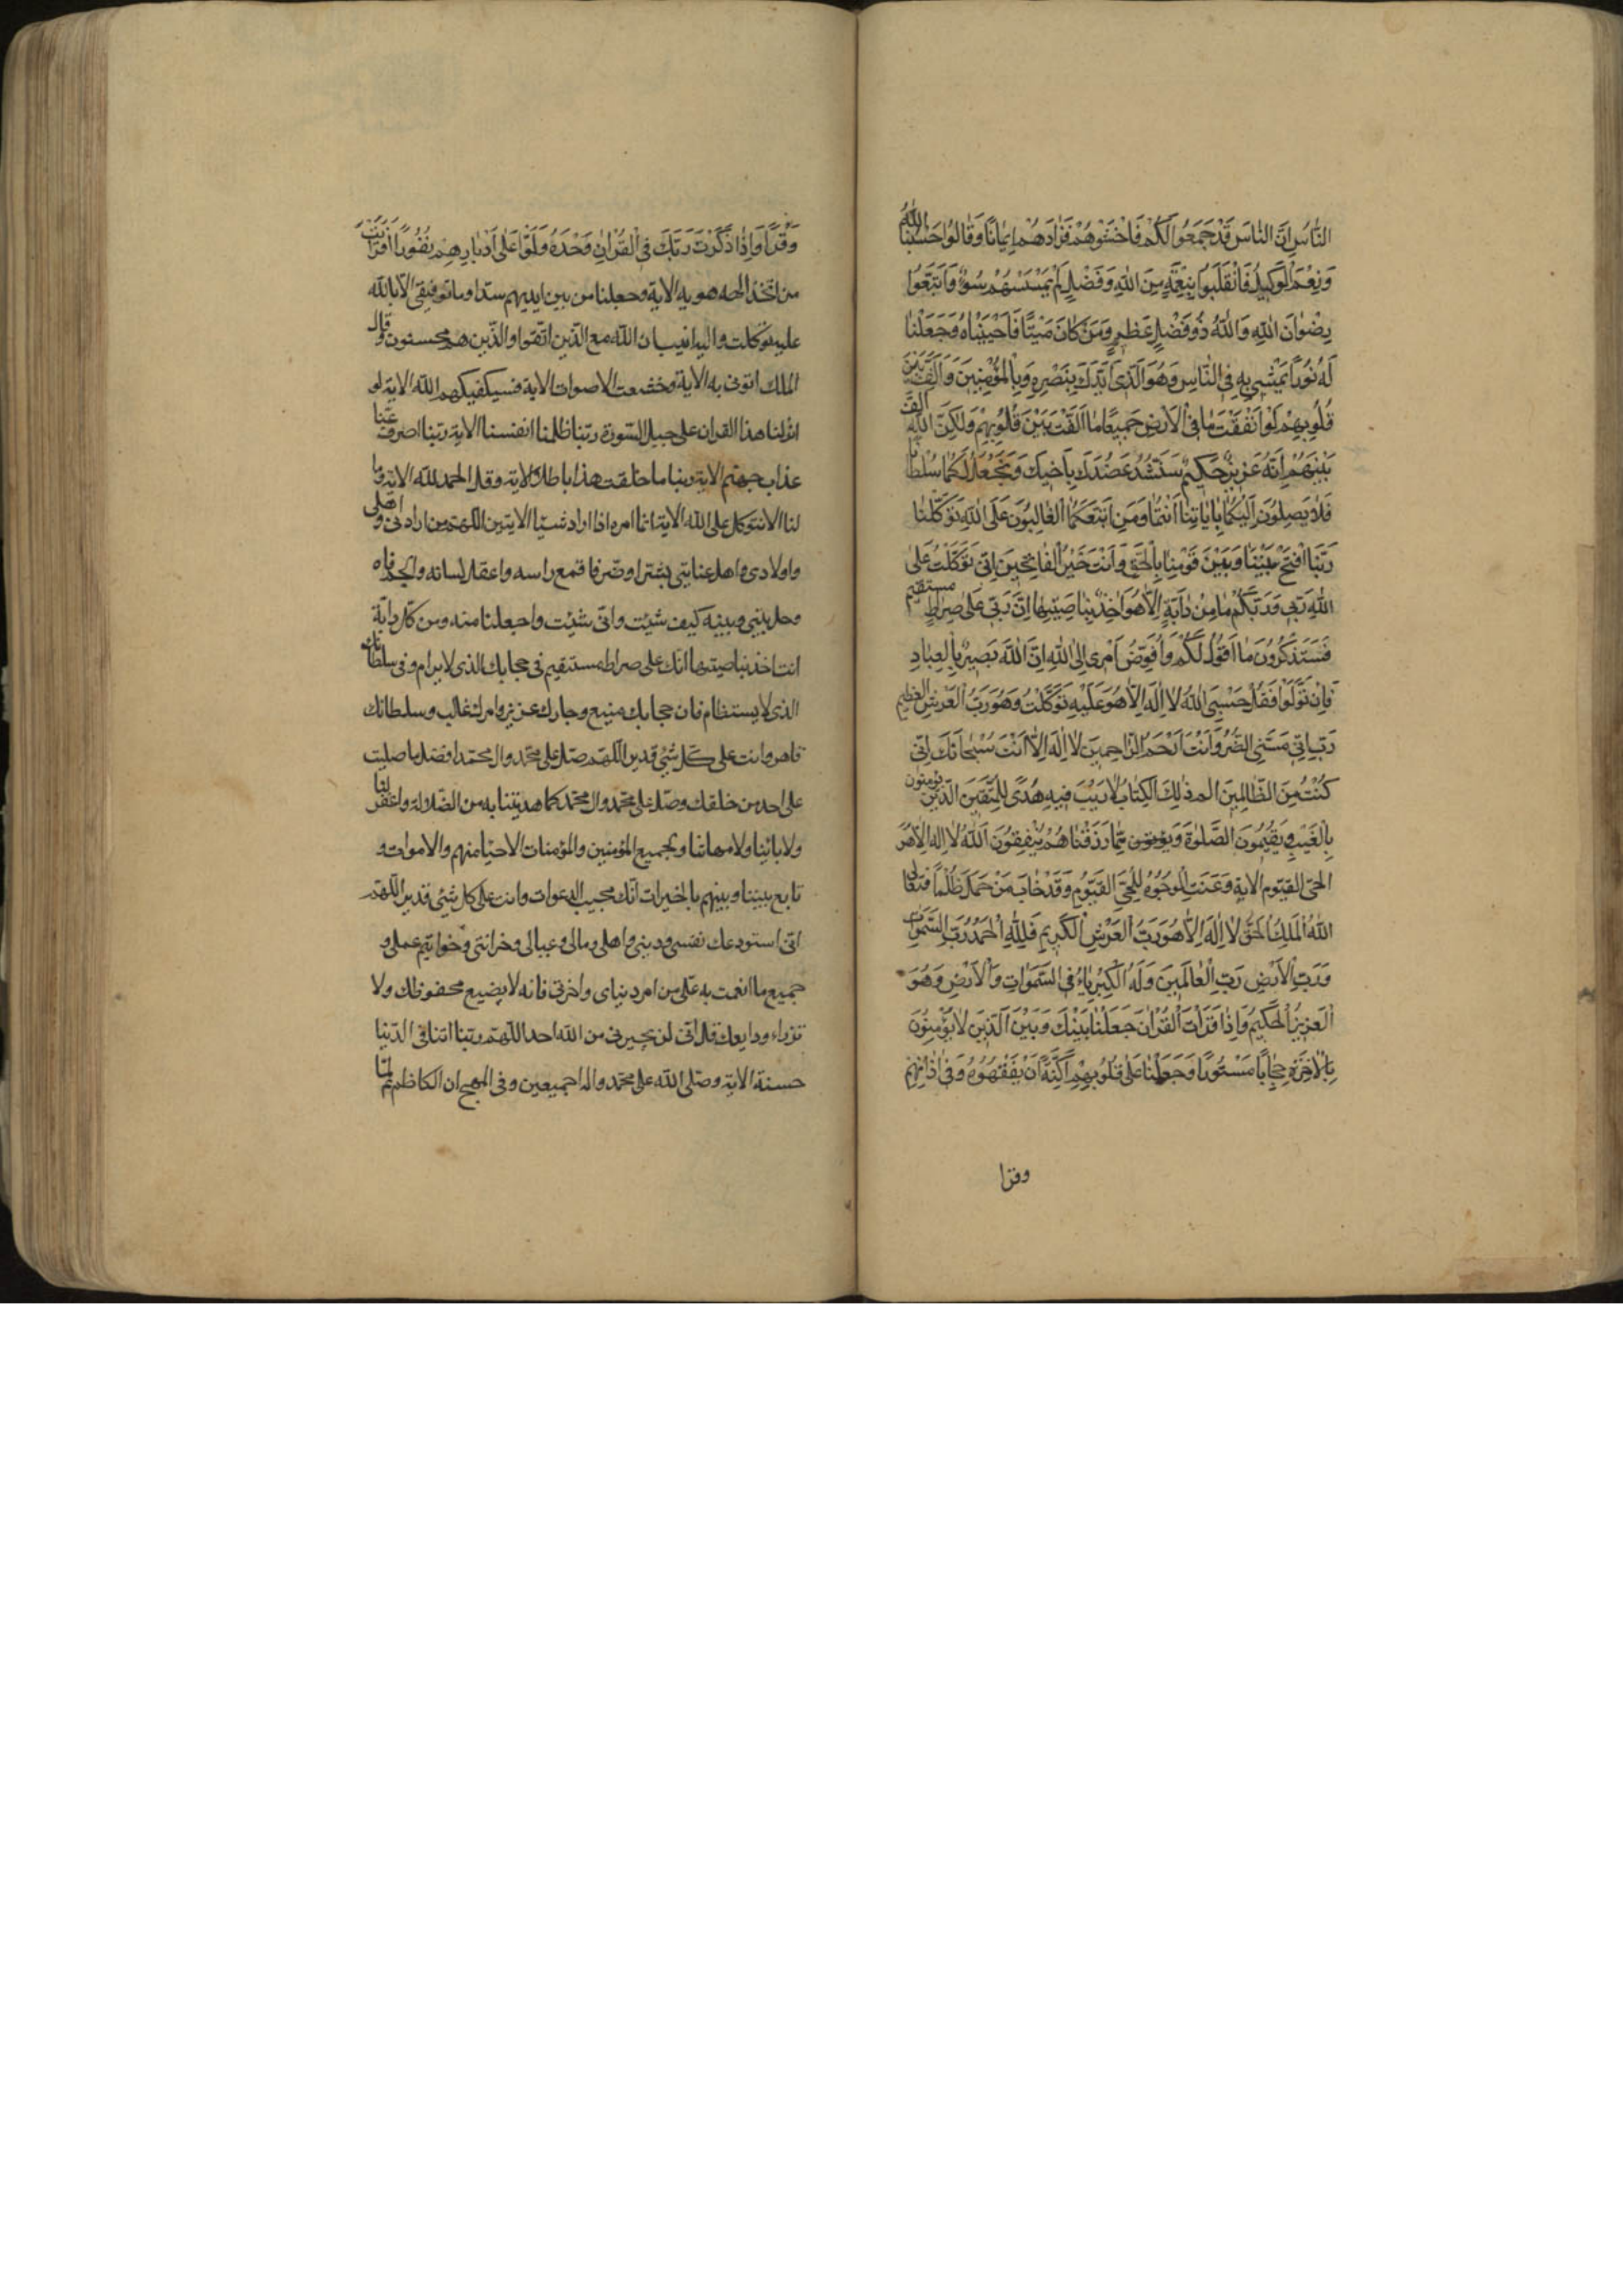 النَّاسُ اِنَّ النَّاسَ قَدْ جَمَعُوا لَكُمْ فَاخْشَوْهُمْ فَزَادَهُمْ اِيمَانًا وَقَالُوا حَسْبُنَا اللّٰهُ
وَنِعْمَ الْوَكِيلُ فَانْقَلَبُوا بِنِعْمَةٍ مِنَ اللّٰهِ وَفَضْلٍ لَمْ يَمْسَسْهُمْ سُوءٌ وَاتَّبَعُوا
رِضْوَانَ اللّٰهِ وَاللّٰهُ ذُو فَضْلٍ عَظِيمٍ وَمَنْ كَانَ مَيْتًا فَاَحْيَيْنَاهُ وَجَعَلْنَا
لَهُ نُورًا يَمْشِي بِهِ فِي النَّاسِ وَهُوَ الَّذِي اَيَّدَكَ بِنَصْرِهِ وَبِالْمُؤْمِنِينَ وَاَلَّفَ بَيْنَ
قُلُوبِهِمْ لَوْ اَنْفَقْتَ مَا فِي الْاَرْضِ جَمِيعًا مَا اَلَّفْتَ بَيْنَ قُلُوبِهِمْ وَلٰكِنَّ اللّٰهَ اَلَّفَ
بَيْنَهُمْ اِنَّهُ عَزِيزٌ حَكِيمٌ سَنَشُدُّ عَضُدَكَ بِاَخِيكَ وَنَجْعَلُ لَكُمَا سُلْطَانًا
فَلَا يَصِلُونَ اِلَيْكُمَا بِاٰيَاتِنَا اَنْتُمَا وَمَنِ اتَّبَعَكُمَا الْغَالِبُونَ عَلَى اللّٰهِ تَوَكَّلْنَا
رَبَّنَا افْتَحْ بَيْنَنَا وَبَيْنَ قَوْمِنَا بِالْحَقِّ وَاَنْتَ خَيْرُ الْفَاتِحِينَ اِنِّي تَوَكَّلْتُ عَلَى
اللّٰهِ رَبِّي وَرَبِّكُمْ مَا مِنْ دَابَّةٍ اِلَّا هُوَ اٰخِذٌ بِنَاصِيَتِهَا اِنَّ رَبِّي عَلَى صِرَاطٍ مستقيم
فَسَتَذْكُرُونَ مَا اَقُولُ لَكُمْ وَاُفَوِّضُ اَمْرِي اِلَى اللّٰهِ اِنَّ اللّٰهَ بَصِيرٌ بِالْعِبَادِ
فَاِنْ تَوَلَّوْا فَقُلْ حَسْبِيَ اللّٰهُ لَا اِلٰهَ اِلَّا هُوَ عَلَيْهِ تَوَكَّلْتُ وَهُوَ رَبُّ الْعَرْشِ الْعَظِيمِ
رَبِّ اِنِّي مَسَّنِيَ الضُّرُّ وَاَنْتَ اَرْحَمُ الرَّاحِمِينَ لَا اِلٰهَ اِلَّا اَنْتَ سُبْحَانَكَ اِنِّي
كُنْتُ مِنَ الظَّالِمِينَ الم ذٰلِكَ الْكِتَابُ لَا رَيْبَ فِيهِ هُدًى لِلْمُتَّقِينَ الَّذِينَ يؤمنون
بِالْغَيْبِ وَيُقِيمُونَ الصَّلٰوةَ وَمِمَّا رَزَقْنَاهُمْ يُنْفِقُونَ اَللّٰهُ لَا اِلٰهَ اِلَّا هُوَ
الْحَيُّ الْقَيُّومُ الاية وَعَنَتِ الْوُجُوهُ لِلْحَيِّ الْقَيُّومِ وَقَدْ خَابَ مَنْ حَمَلَ ظُلْمًا فَتَعَالَى
اللّٰهُ الْمَلِكُ الْحَقُّ لَا اِلٰهَ اِلَّا هُوَ رَبُّ الْعَرْشِ الْكَرِيمِ فَلِلّٰهِ الْحَمْدُ رَبِّ السَّمٰوَاتِ
وَرَبِّ الْاَرْضِ رَبِّ الْعَالَمِينَ وَلَهُ الْكِبْرِيَاءُ فِي السَّمٰوَاتِ وَالْاَرْضِ وَهُوَ
الْعَزِيزُ الْحَكِيمُ وَاِذَا قَرَاْتَ الْقُرْاٰنَ جَعَلْنَا بَيْنَكَ وَبَيْنَ الَّذِينَ لَا يُؤْمِنُونَ
بِالْاٰخِرَةِ حِجَابًا مَسْتُورًا وَجَعَلْنَا عَلَى قُلُوبِهِمْ اَكِنَّةً اَنْ يَفْقَهُوهُ وَفِي اٰذَانِهِمْ
وقرا
وَقْرًا وَاِذَا ذَكَرْتَ رَبَّكَ فِي الْقُرْاٰنِ وَحْدَهُ وَلَّوْا عَلَى اَدْبَارِهِمْ نُفُورًا اَفَرَاَيْتَ
من اتخذ الهه هويه الاية وجعلنا من بين ايديهم سدا وما توفيقي الا بالله
عليه توكلت واليه انيب ان الله مع الذين اتقوا والذين هم محسنون وقال
الملك ائتوني به الاية وخشعت الاصوات الاية فسيكفيكهم الله الاية لو
انزلنا هذا القران على جبل السورة ربنا ظلمنا انفسنا الاية ربنا اصرف عنا
عذاب جهنم الاية ربنا ما خلقت هذا باطلا الاية وقل الحمد لله الاية وما
لنا الا نتوكل على الله الاية انما امره اذا اراد شيئا الايتين اللهم من ارادني واهلي
واولادي واهل عنايتي بشر او ضر فاقمع راسه واعقل لسانه والجم فاه
وحل بيني وبينه كيف شئت وانى شئت واجعلنا منه ومن كل دابة
انت اخذ بناصيتها انك على صراط مستقيم في حجابك الذي لا يرام وفي سلطانك
الذي لا يستضام فان حجابك منيع وجارك عزيز وامرك غالب وسلطانك
قاهر وانت على كل شئ قدير اللهم صل على محمد وال محمد افضل ما صليت
على احد من خلقك وصل على محمد وال محمد كما هديتنا به من الضلالة واغفر لنا
ولابائنا ولامهاتنا ولجميع المؤمنين والمؤمنات الاحيا منهم والاموات و
تابع بيننا وبينهم بالخيرات انك مجيب الدعوات وانت على كل شئ قدير اللهم
اني استودعك نفسي وديني واهلي ومالي وعيالي وخزانتي وخواتيم عملي و
جميع ما انعمت به علي من امر دنياي واخرتي فانه لا يضيع محفوظك ولا
تزراء ودايعك قل اني لن يجيرني من الله احد اللهم ربنا اتنا في الدنيا
حسنة الاية وصلى الله على محمد واله اجمعين وفي المهج ان الكاظم لما